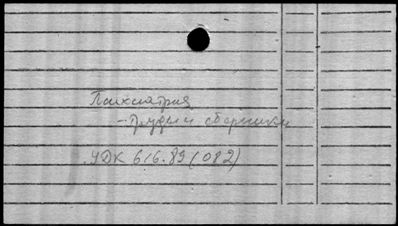 Психиатрия
- Труды и сборники
УДК 616.89(082)